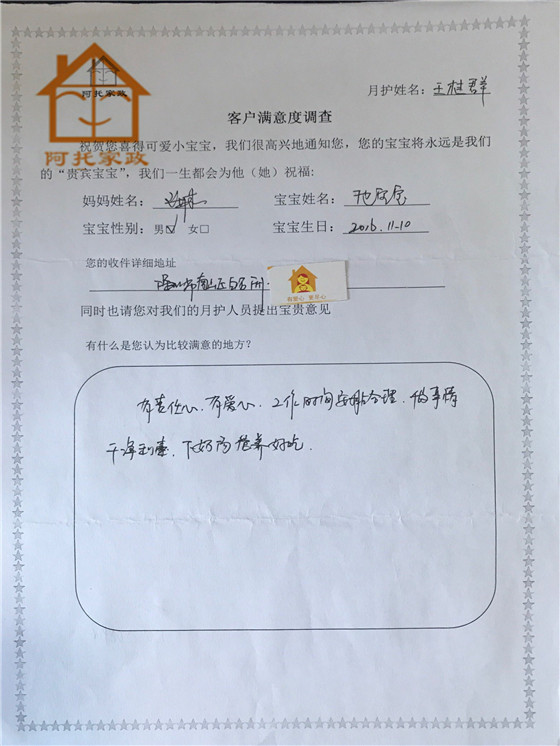 阿托家政
阿托家政
月护姓名：王桂群
客户满意度调查
祝贺您喜得可爱小宝宝，我们很高兴地通知您，您的宝宝将永远是我们
的“贵宾宝宝”，我们一生都会为他（她）祝福：
妈妈姓名： 宝宝姓名：
宝宝性别：男☑ 女□ 宝宝生日：2016.11-10
您的收件详细地址
深圳市南山区
有爱心 更贝心
同时也请您对我们的月护人员提出宝贵意见
有什么是您认为比较满意的地方？
有责任心、有爱心、工作时间安排合理、做事情
干净利索、下奶汤 好吃.